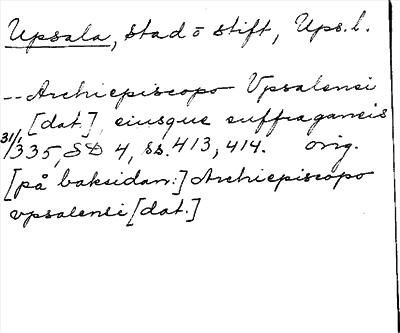 Upsala, stad o stift, Ups. l.
-- Archiepiscopo Vpsalensi
[dat.] eiusque suffraganeis
31/1 1335, SD 4, ss. 413, 414. orig.
[på baksidan:] Archiepiscopo
vpsalensi [dat.]